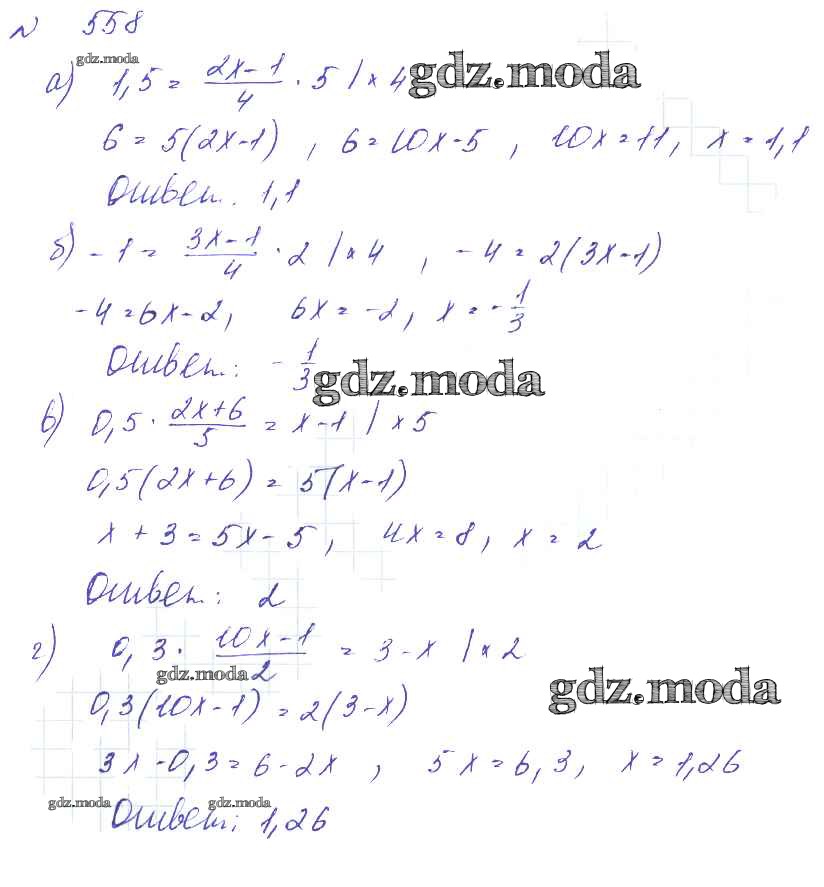 № 558
gdz.moda
а) 1,5 = (2x-1)/4 · 5 | × 4
gdz.moda
6 = 5(2x-1) , 6 = 10x-5 , 10x=11, x = 1,1
Ответ. 1,1
б) -1 = (3x-1)/4 · 2 | × 4 , -4 = 2(3x-1)
-4 = 6x-2, 6x = -2, x = -1/3
Ответ: -1/3
gdz.moda
в) 0,5 · (2x+6)/5 = x-1 | × 5
0,5(2x+6) = 5(x-1)
x + 3 = 5x-5, 4x = 8, x = 2
Ответ: 2
г) 0,3 · (10x-1)/2 = 3-x | × 2
gdz.moda
gdz.moda
0,3(10x-1) = 2(3-x)
3x-0,3 = 6-2x , 5x = 6,3, x = 1,26
gdz.moda
gdz.moda
Ответ: 1,26